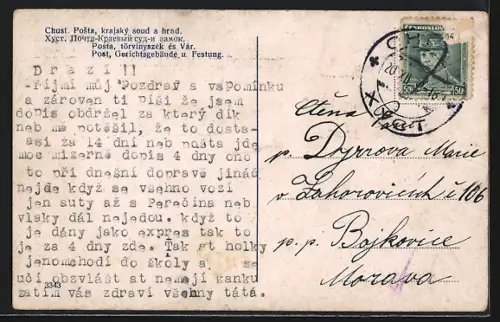 Chust. Pošta, krajský soud a hrad.
Хуст. Почта-Краевый суд-и замок.
Posta, törvinyszék és Vár.
Post, Gerichtsgebäude u. Festung.
Drazí!!
Přijmi můj Pozdraf a vspomínku
a zároven ti píši že jsem
dopis obdržel za který dík
neb mě potěšil, že to dosta-
asi za 14 dní neb pošta jde
moc mizerně dopis 4 dny ono
to při dnešní dopravě jináč
nejde když se všehno vozí
jen auty až s Perečína neb
vlsky dál nejedou. když to
je dány jako expres tak to
je za 4 dny zde. Tak at holky
jenomehodí do školy a se
učí obzvlášt at nemají kanku
zatím vás zdraví všehny tátá.
3343
ČESKOSLOV
50h
50h
CHUST
Ctěná
p. Dyrrova Marie
v Záhorovicích č 106
p. p. Bojkovice
Morava